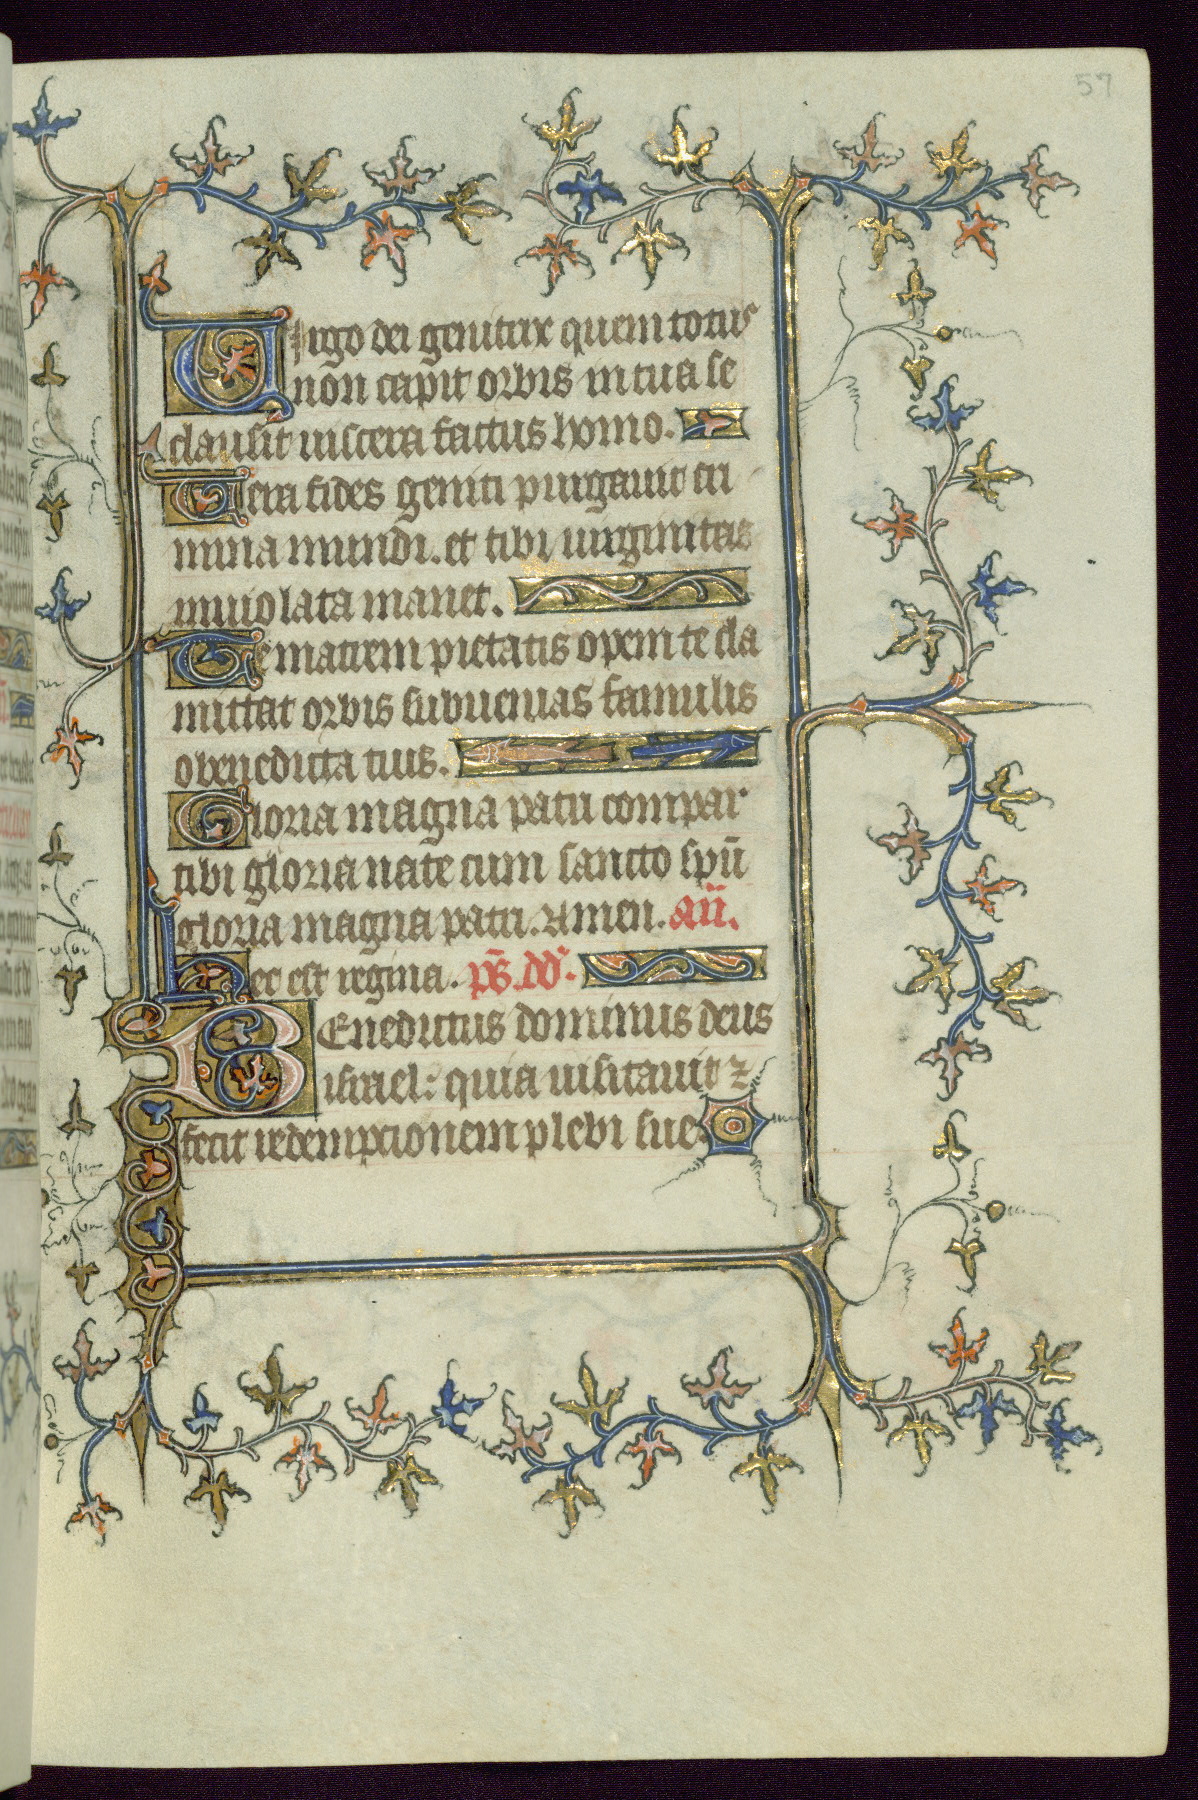 57
Virgo dei genitrix quem totus
non capit orbis in tua se
clausit viscera factus homo.
Vera fides geniti purgavit cri
mina mundi. et tibi virginitas
inviolata manet.
Te matrem pietatis opem te cla
mittat orbis subvenias famulis
o benedicta tuis.
Gloria magna patri compar
tibi gloria nate cum sancto spū
gloria magna patri. Amen. añ.
Hec est regina. p̄s. dd̄.
Benedictus dominus deus
israel: quia visitavit ⁊
fecit redempcionem plebi sue